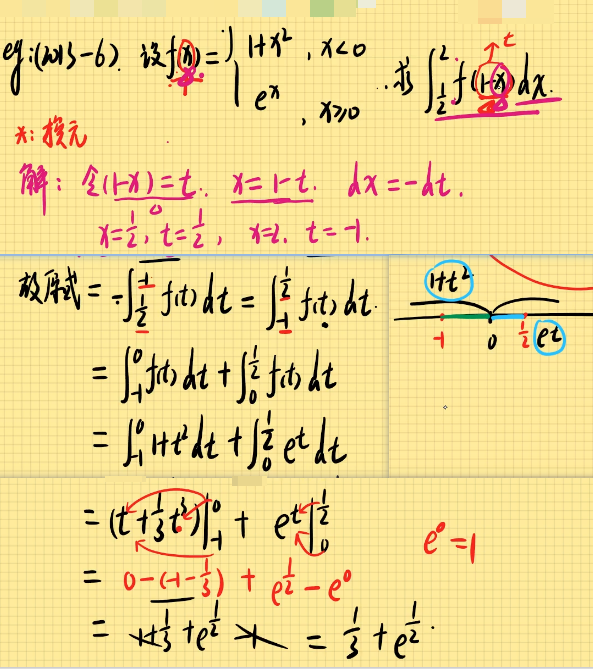 eg:(2013-6). 设f(x)= { 1+x², x<0
e^x, x≥0 . 求∫_{1/2}^{2} f(1-x)dx.
t
*: 换元
解: 令(1-x)=t. x=1-t. dx=-dt.
0
x=1/2, t=1/2, x=2. t=-1.
故原式=-∫_{1/2}^{-1} f(t)dt=∫_{-1}^{1/2} f(t)dt.
=∫_{-1}^{0} f(t)dt+∫_{0}^{1/2} f(t)dt
=∫_{-1}^{0} 1+t²dt+∫_{0}^{1/2} e^t dt
1+t²
-1 0 1/2 e^t
=(t+1/3 t³)|_{-1}^{0} + e^t|_{0}^{1/2}
e^0=1
= 0-(-1-1/3)+e^{1/2}-e^0
= 1+1/3+e^{1/2}-1 = 1/3+e^{1/2}.